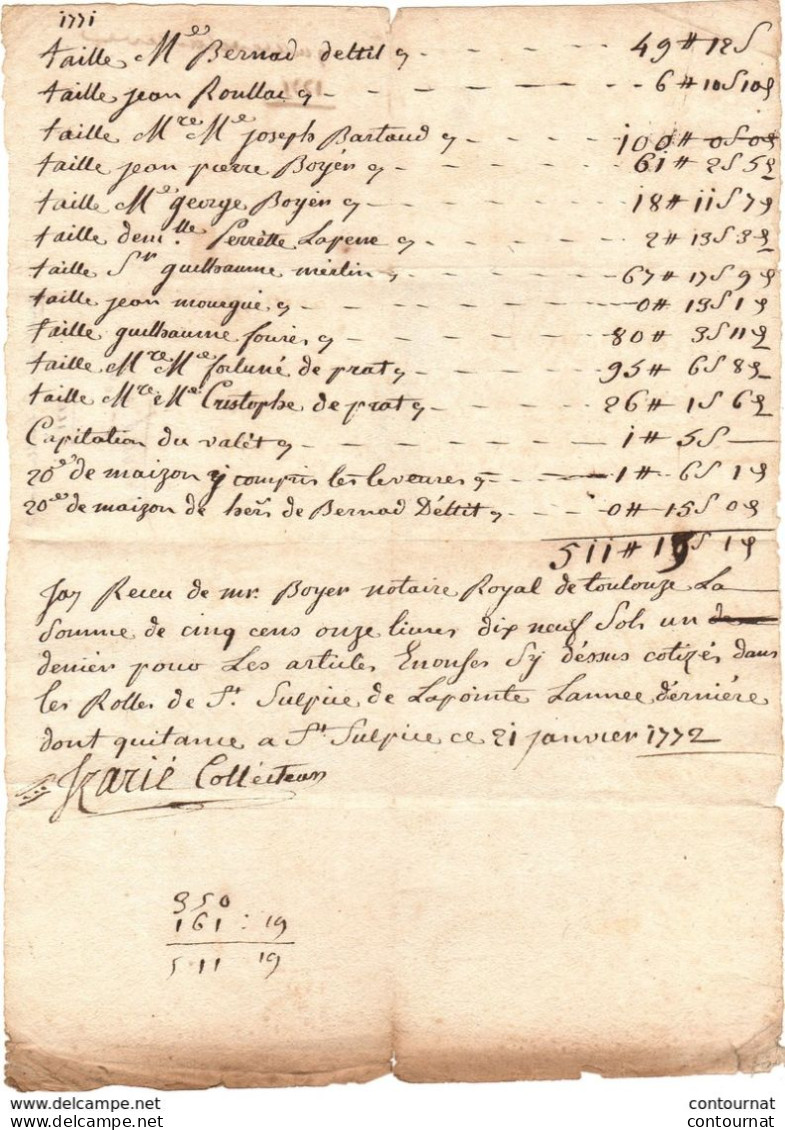 1771
taille Me Bernad dettil 49 # 12 S
taille jean Roullac 6 # 10 S 10 d
taille Mre Me joseph Bartaud 100 # 0 S 0 d
taille jean pierre Boyér 61 # 2 S 5 d
taille Me george Boyér 18 # 11 S 7 d
taille demlle Perrétte Lapene 2 # 13 S 3 d
taille Sr guilhaume mérlin 67 # 17 S 9 d
taille jean mouegué 0 # 13 S 1 d
taille guilhaume fourés 80 # 3 S 11 d
taille Mre Me fortuné de prat 95 # 6 S 8 d
taille Mre Me Cristophe de prat 26 # 1 S 6 d
Capitation du valét 1 # 5 S
20es de maizon y compris les leveures 1 # 6 S 1 d
20es de maizon de hers de Bernad Déttit 0 # 15 S 0 d
511 # 19 S 1 d
Jay Receu de mr. Boyer notaire Royal de toulouze La
Somme de cinq cens onze livres dix neuf Sols un
denier pour Les articles Enonses Sy déssus cotizés dans
les Rolles de St. Sulpice de Lapointe Lannee dérniére
dont quitance a St Sulpice ce 21 janvier 1772
Izarié Collécteur
350
161 : 19
511 19
contournat
contournat